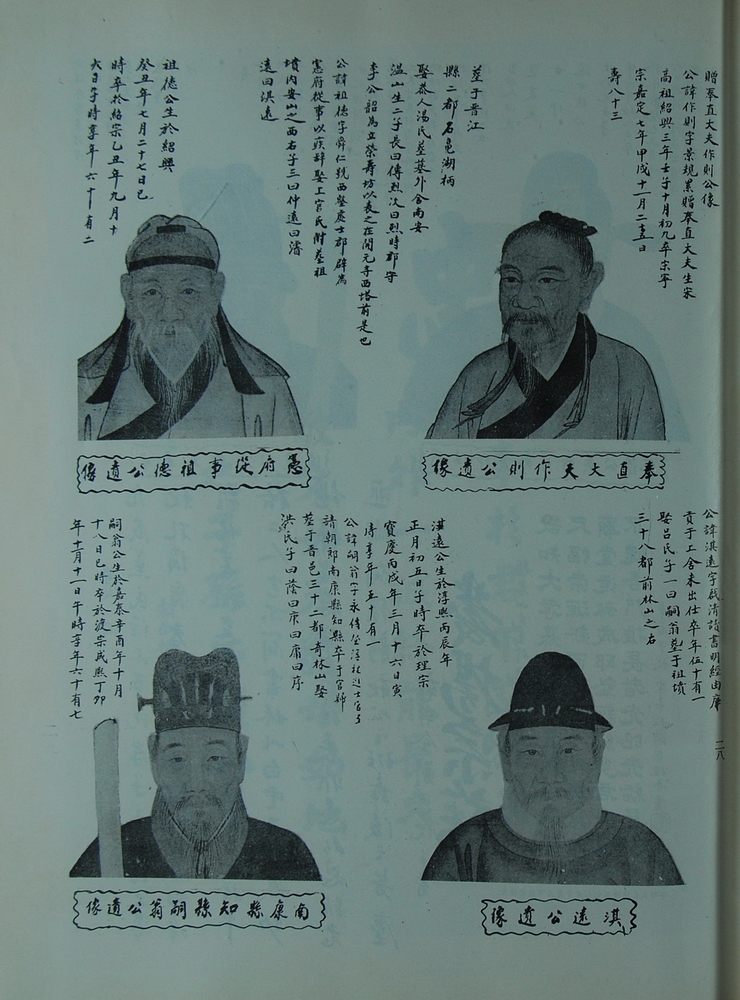 贈奉直大夫作則公像
公諱作則字景規累贈奉直大夫生宋
高祖紹興三年壬子十月初九卒宗寧
宗嘉定七年甲戌十一月二十五日
壽八十三
葬于晋江
縣二都石龜湖柄
娶恭人湯氏葬墓外舍南安
溫山生二子長曰傳烈次曰烈時郡守
李公韶為立榮壽坊以表之在開元寺西塔前是也
公諱祖德字舜仁號西盤處士郡辟為
憲府從事以疾辭娶上官氏附葬祖
墳內安山之西右子三曰仲遠曰濬
遠曰淇遠
祖德公生於紹興
癸丑年七月二十七日巳
時卒於紹宗乙丑年九月十
六日子時享年六十有二
奉直大夫作則公遺像
憲府從事祖德公遺像
公諱淇遠字戩清讀書明經由庠
貢于上舍未出仕卒年伍十有一
娶呂氏子一曰嗣翁墓于祖墳
三十八都前林山之右
淇遠公生於淳熙丙辰年
正月初五日子時卒於理宗
寶慶丙戌年三月十六日寅
時享年五十有一
公諱嗣翁字永傳登淳祐進士官予
請朝郎南康縣知縣卒于官歸
葬于晋邑三十二都奇林山娶
洪氏子曰蔭曰庚曰庸曰序
嗣翁公生於嘉泰辛酉年十月
十八日巳時卒於渡宗咸熙丁卯
年十月十一日午時享年六十有七
二八
淇遠公遺像
南康縣知縣嗣翁公遺像